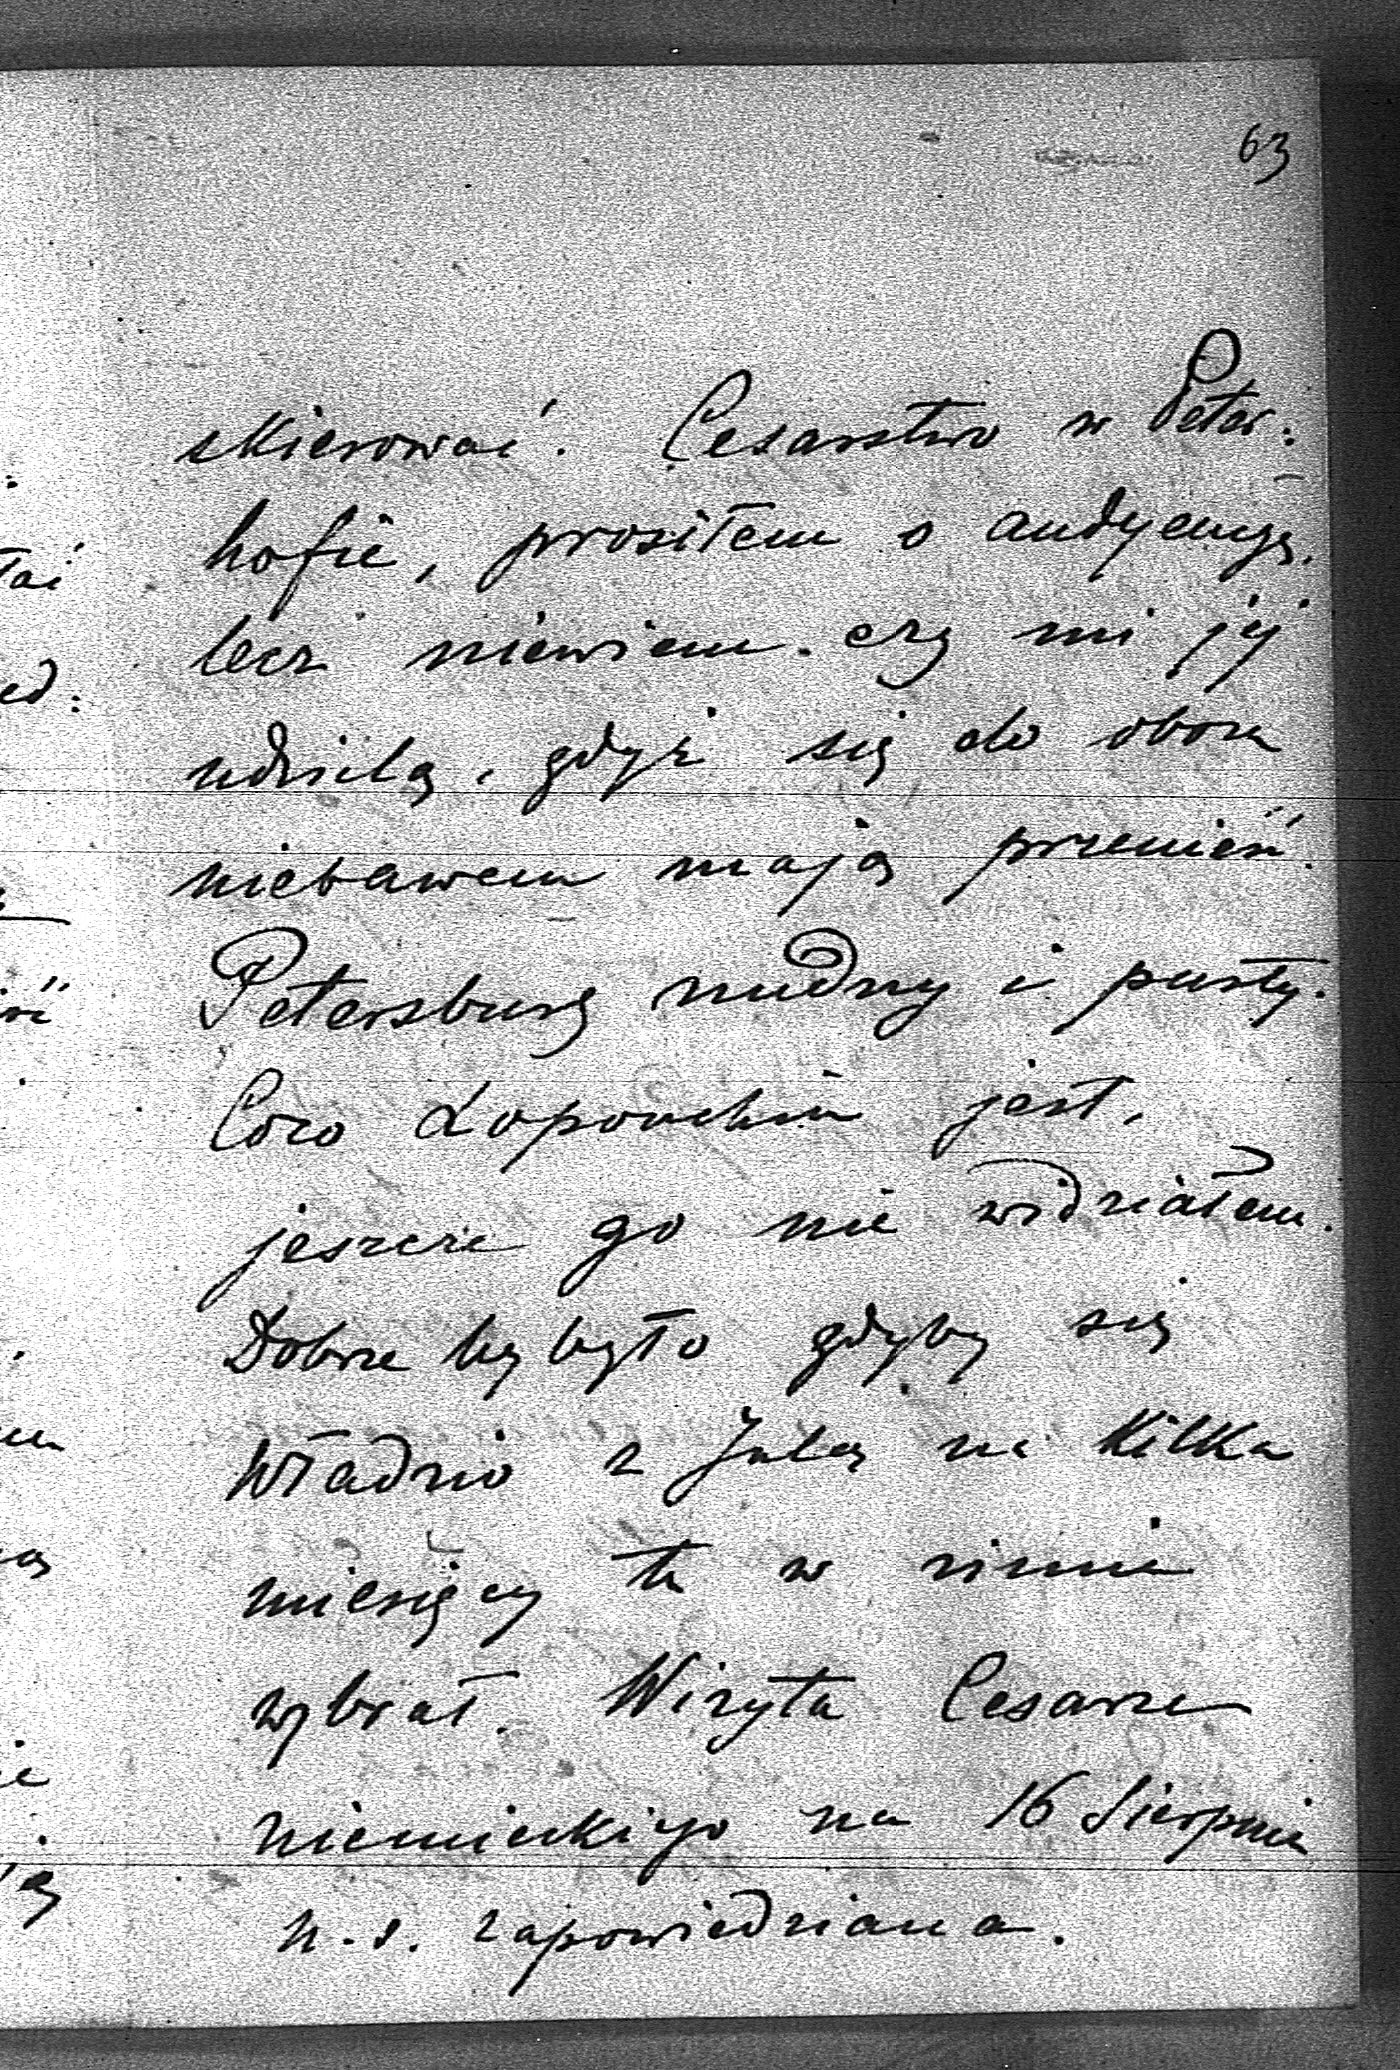 63
skierować. Cesarstwo w Peter:
hofie, prosiłem o audyencyę.
lecz niewiem czy mi jéj
udzielą, gdyż się do obozu
niebawem mają przenieść.
Petersburg nudny i pusty.
Coco Łopouchin jest,
jeszcze go nie widziałem.
Dobrze by było gdyby się
Władzio z Julą na kilka
miesięcy tu w zimie
wybrał. Wizyta Cesarza
niemieckiego na 16 Sierpnia
n. s. zapowiedziana.